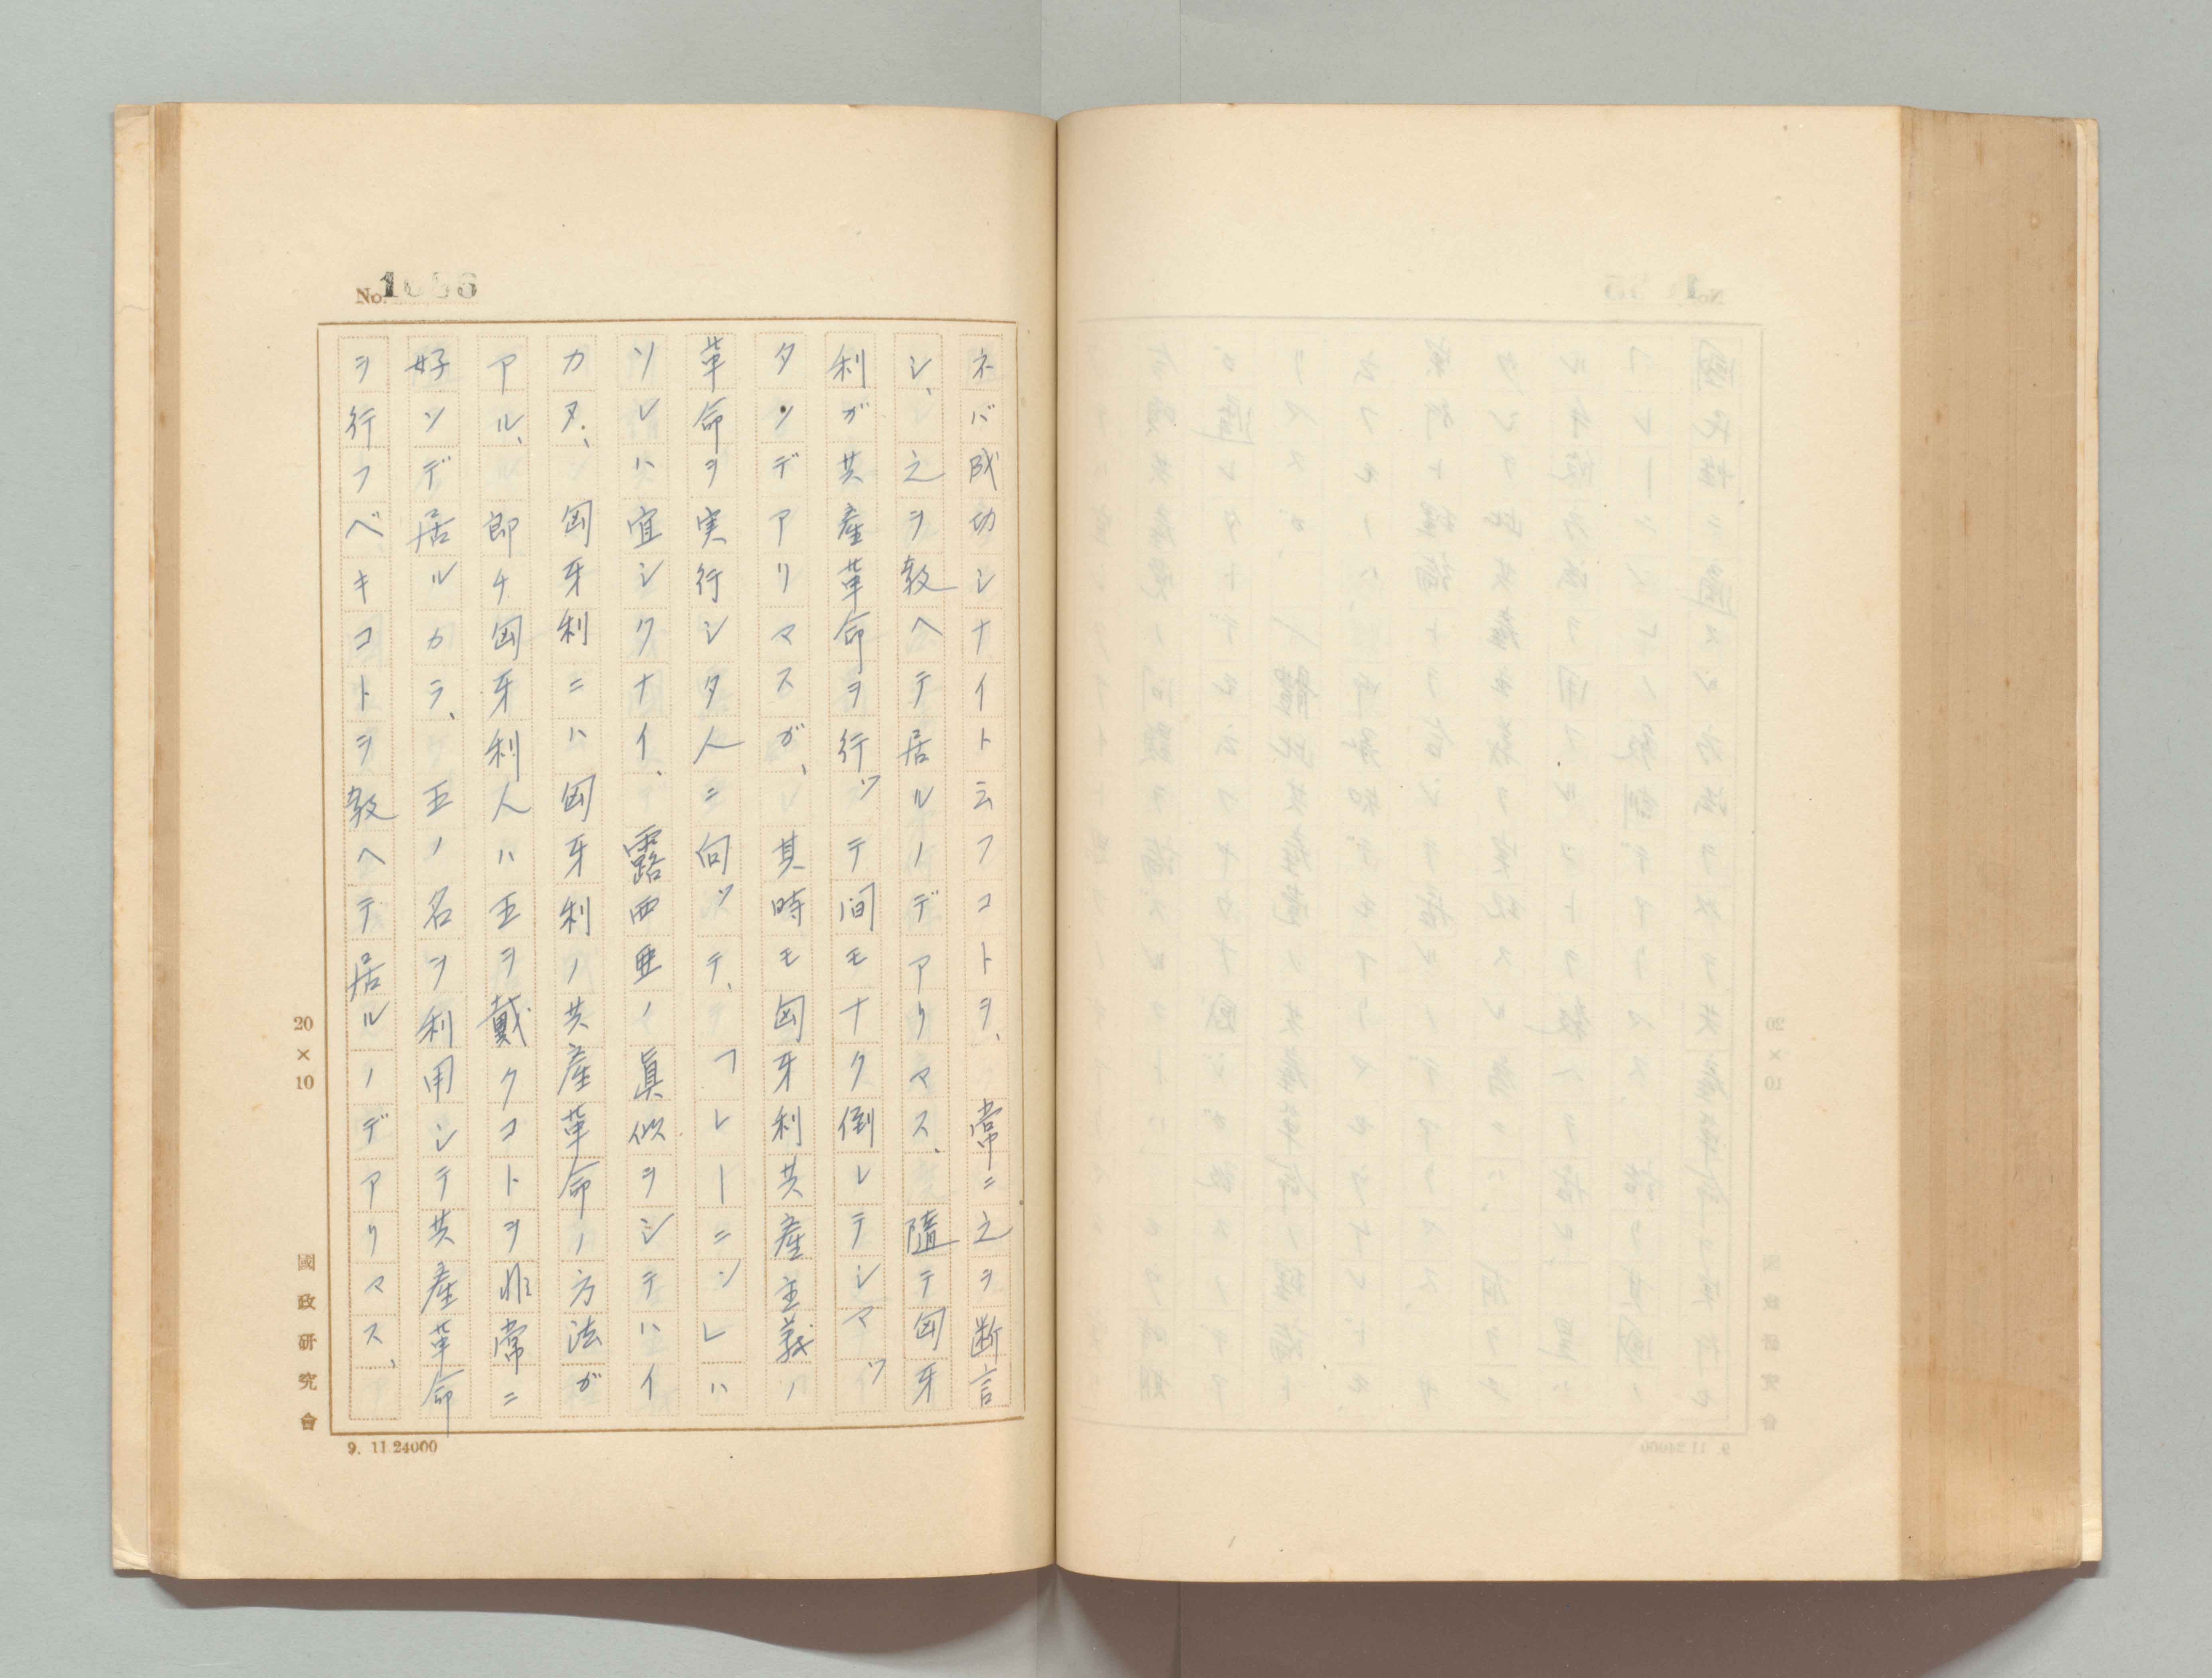 ネバ成功シナイト云フコトヲ、常ニ之ヲ断言
シ、之ヲ教ヘテ居ルノデアリマス、隨テ匈牙
利ガ共産革命ヲ行ッテ間モナク倒レテシマッ
タンデアリマスガ、其時モ匈牙利共産主義ノ
革命ヲ実行シタ人ニ向ッテ、「レーニン」ハ
ソレハ宜シクナイ、露西亜ノ眞似ヲシテハイ
カヌ、匈牙利ニハ匈牙利ノ共産革命ノ方法ガ
アル、即チ匈牙利人ハ王ヲ戴クコトヲ非常ニ
好ンデ居ルカラ、王ノ名ヲ利用シテ共産革命
ヲ行フベキコトヲ教ヘテ居ルノデアリマス、
No.
20×10
國政研究會
9. 11 24000